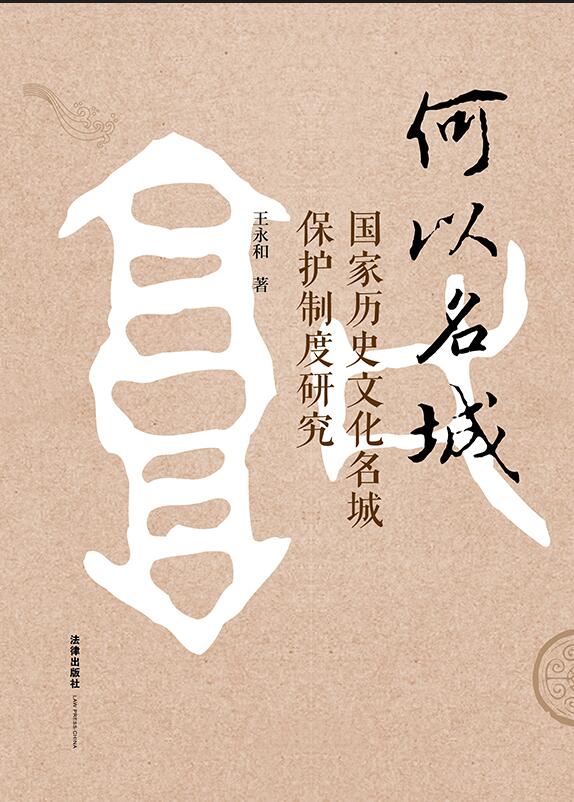 何以名城
国家历史文化名城
保护制度研究
王永和 著
法律出版社
LAW PRESS·CHINA